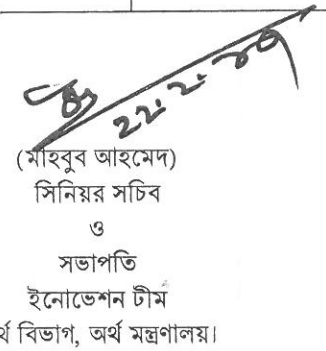 (মাহবুব আহমেদ)
সিনিয়র সচিব
ও
সভাপতি
ইনোভেশন টীম
র্থ বিভাগ, অর্থ মন্ত্রণালয়।